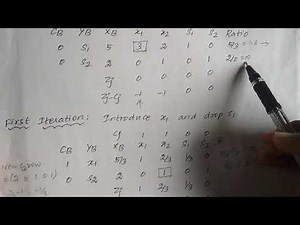 CB YB XB x₁ x₂ S₁ S₂ Ratio
0 S₁ 5 3 2 1 0 5/3 = 1.6 →
0 S₂ 2 0 1 0 1 2/0 = ∞
Zj 0 0 0 0 0
Zj-Cj -1 -1 0 0
First Iteration: Introduce x₁ and drop S₁
Cj 1 1 0 0
CB YB XB x₁ x₂ S₁ S₂
New S₂ row 1 x₁ 5/3 1 2/3 1/3 0
0 S₂ 2 0 1 0 1
Zj 1 2/3 1/3